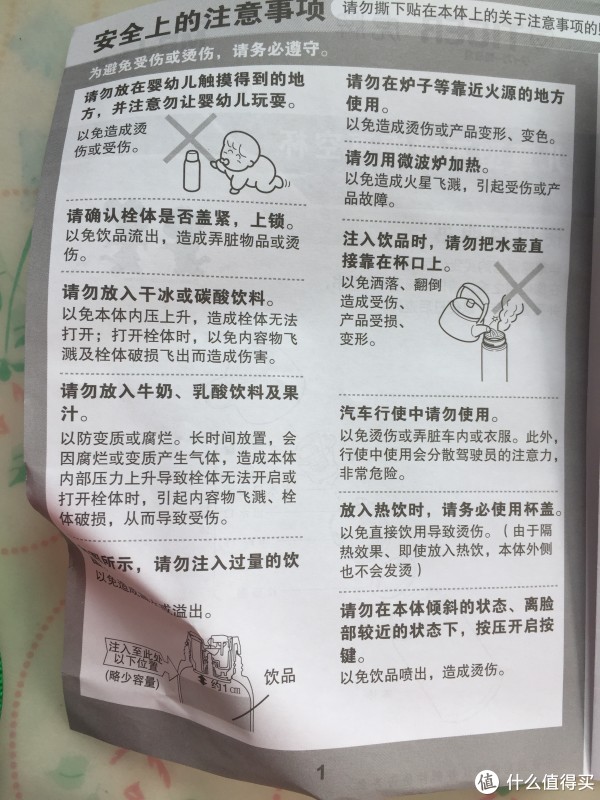 安全上的注意事项
请勿撕下贴在本体上的关于注意事项的
为避免受伤或烫伤，请务必遵守。
请勿放在婴幼儿触摸得到的地
方，并注意勿让婴幼儿玩耍。
以免造成烫
伤或受伤。
请确认栓体是否盖紧，上锁。
以免饮品流出，造成弄脏物品或烫
伤。
请勿放入干冰或碳酸饮料。
以免本体内压上升，造成栓体无法
打开；打开栓体时，以免内容物飞
溅及栓体破损飞出而造成伤害。
请勿放入牛奶、乳酸饮料及果
汁。
以防变质或腐烂。长时间放置，会
因腐烂或变质产生气体，造成本体
内部压力上升导致栓体无法开启或
打开栓体时，引起内容物飞溅、栓
体破损，从而导致受伤。
所示，请勿注入过量的饮
以免造
溢出。
注入至此处
以下位置
(略少容量)
约1cm
饮品
请勿在炉子等靠近火源的地方
使用。
以免造成烫伤或产品变形、变色。
请勿用微波炉加热。
以免造成火星飞溅，引起受伤或产
品故障。
注入饮品时，请勿把水壶直
接靠在杯口上。
以免洒落、翻倒
造成受伤、
产品受损、
变形。
汽车行使中请勿使用。
以免烫伤或弄脏车内或衣服。此外，
行使中使用会分散驾驶员的注意力，
非常危险。
放入热饮时，请务必使用杯盖。
以免直接饮用导致烫伤。（由于隔
热效果、即使放入热饮，本体外侧
也不会发烫）
请勿在本体倾斜的状态、离脸
部较近的状态下，按压开启按
键。
以免饮品喷出，造成烫伤。
1
值 什么值得买